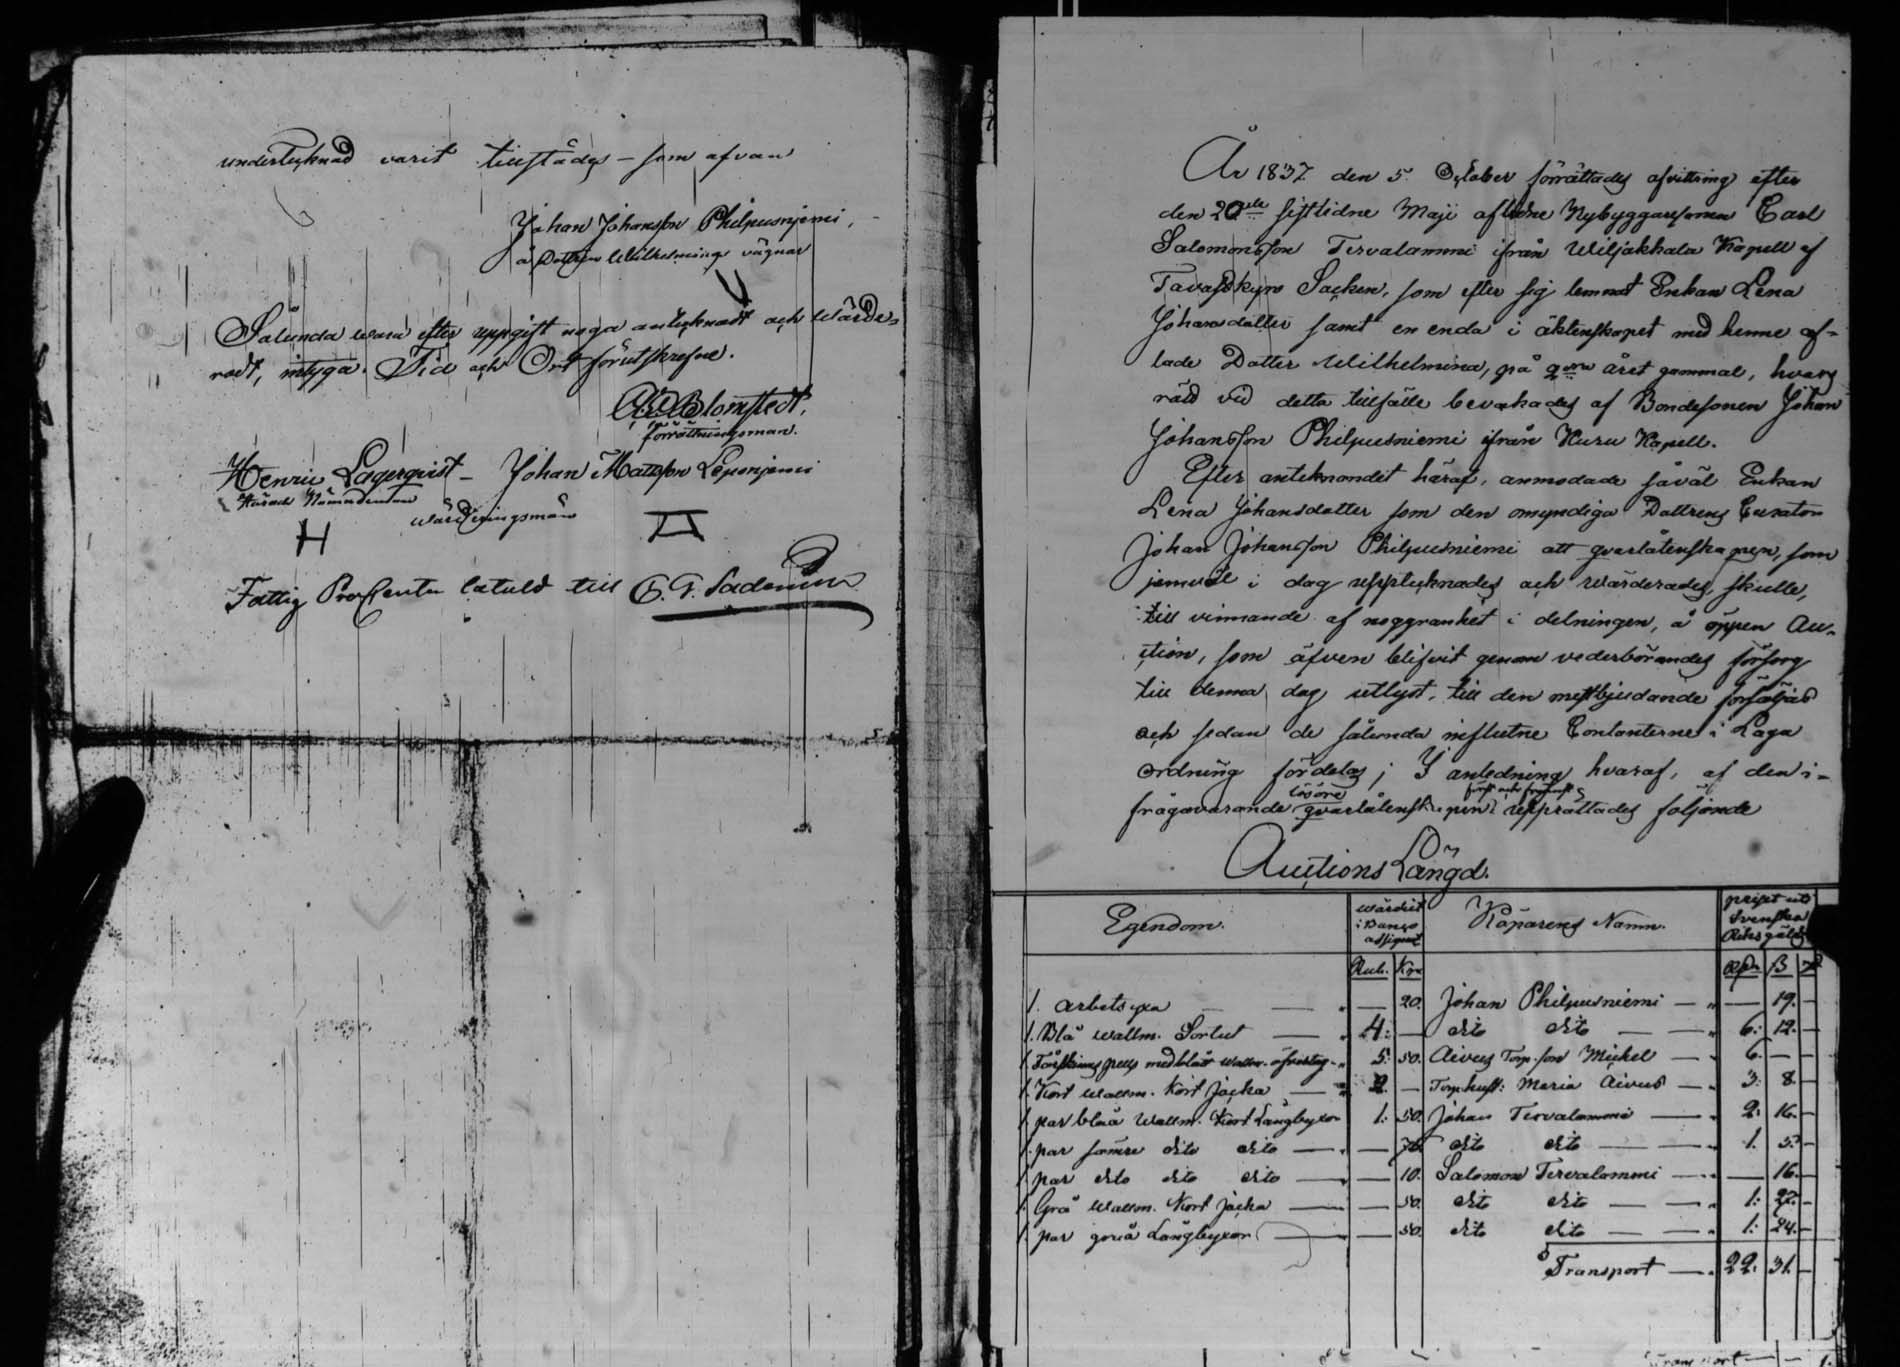 undertecknad varit tillstädes – som ofvan
Johan Johansson Philpusnjemi,
å Dottren Wilhelminas vägnar
Sålunda vara efter uppgift noga antecknadt och värde-
radt, intyga. Tid och Ort förutskrefne.
Blomstedt,
förrättningsman.
Henric Lagerqvist – Johan Mattsson Leponjemi
Härads Nämndeman
värderingsmän
H
Fattig Procenten betald till
År 1837 den 5 October förrättades afvittring efter
den 20de sistlidne Maji aflidne Nybyggaresonen Carl
Salomonsson Tervalammi ifrån Wiljakkala Kapell af
Tavastkyro Socken, som efter sig lemnat Enkan Lena
Johansdotter samt en enda i äktenskapet med henne af-
lade Dotter Wilhelmina, på året gammal, hvars
rätt vid detta tillfälle bevakades af Bondesonen Johan
Johansson Philpusniemi ifrån Kuru Kapell.
Efter antecknandet häraf, anmodade såväl Enkan
Lena Johansdotter som den omyndiga Dottrens Curator
Johan Johansson Philpusniemi att qvarlåtenskapen, som
jemväl i dag upptecknades och värderades, skulle,
till vinnande af noggranhet i delningen, å öppen Au-
ction, som äfven blifvit genom vederbörandes försorg
till denna dag utlyst, till den mestbjudande försäljas
och sedan de sålunda influtne Contanterne i Laga
ordning fördelas; I anledning hvaraf, af den i-
lösöre
frågavarande qvarlåtenskapen upprättades följande
Auctions Längd.
Egendom. Wärdet i Banco assignat Köparens Namn. priset uti Svenska Riksgälds
Rub. Kop Rdr ß
1. Arbetsyxa — — 20. Johan Philpusniemi — — 19. —
1. Blå wallm. Sortut — 4: — dito dito — 6: 12. —
1. Fårskinns pells med blått wallm. 5: 50. Aivus Torp.son Michel — 6. — —
1. Kort wallm. Kort Jacka — 2. — Torp.hust: Maria Aivus — 3: 8. —
1. par blåa Wallm. Kort Långbyxor 1: 50. Johan Tervalammi — 2. 16. —
1. par sämre dito dito — — 75. dito dito — 1. 5. —
1. par dito dito dito — — 10. Salomon Tervalammi — — 16. —
1. Grå Wallm. Kort Jacka — — 50. dito dito — 1: 22. —
1. par gråa Långbyxor — — 50. dito dito — 1: 24. —
Transport — 22. 31. —
Transport